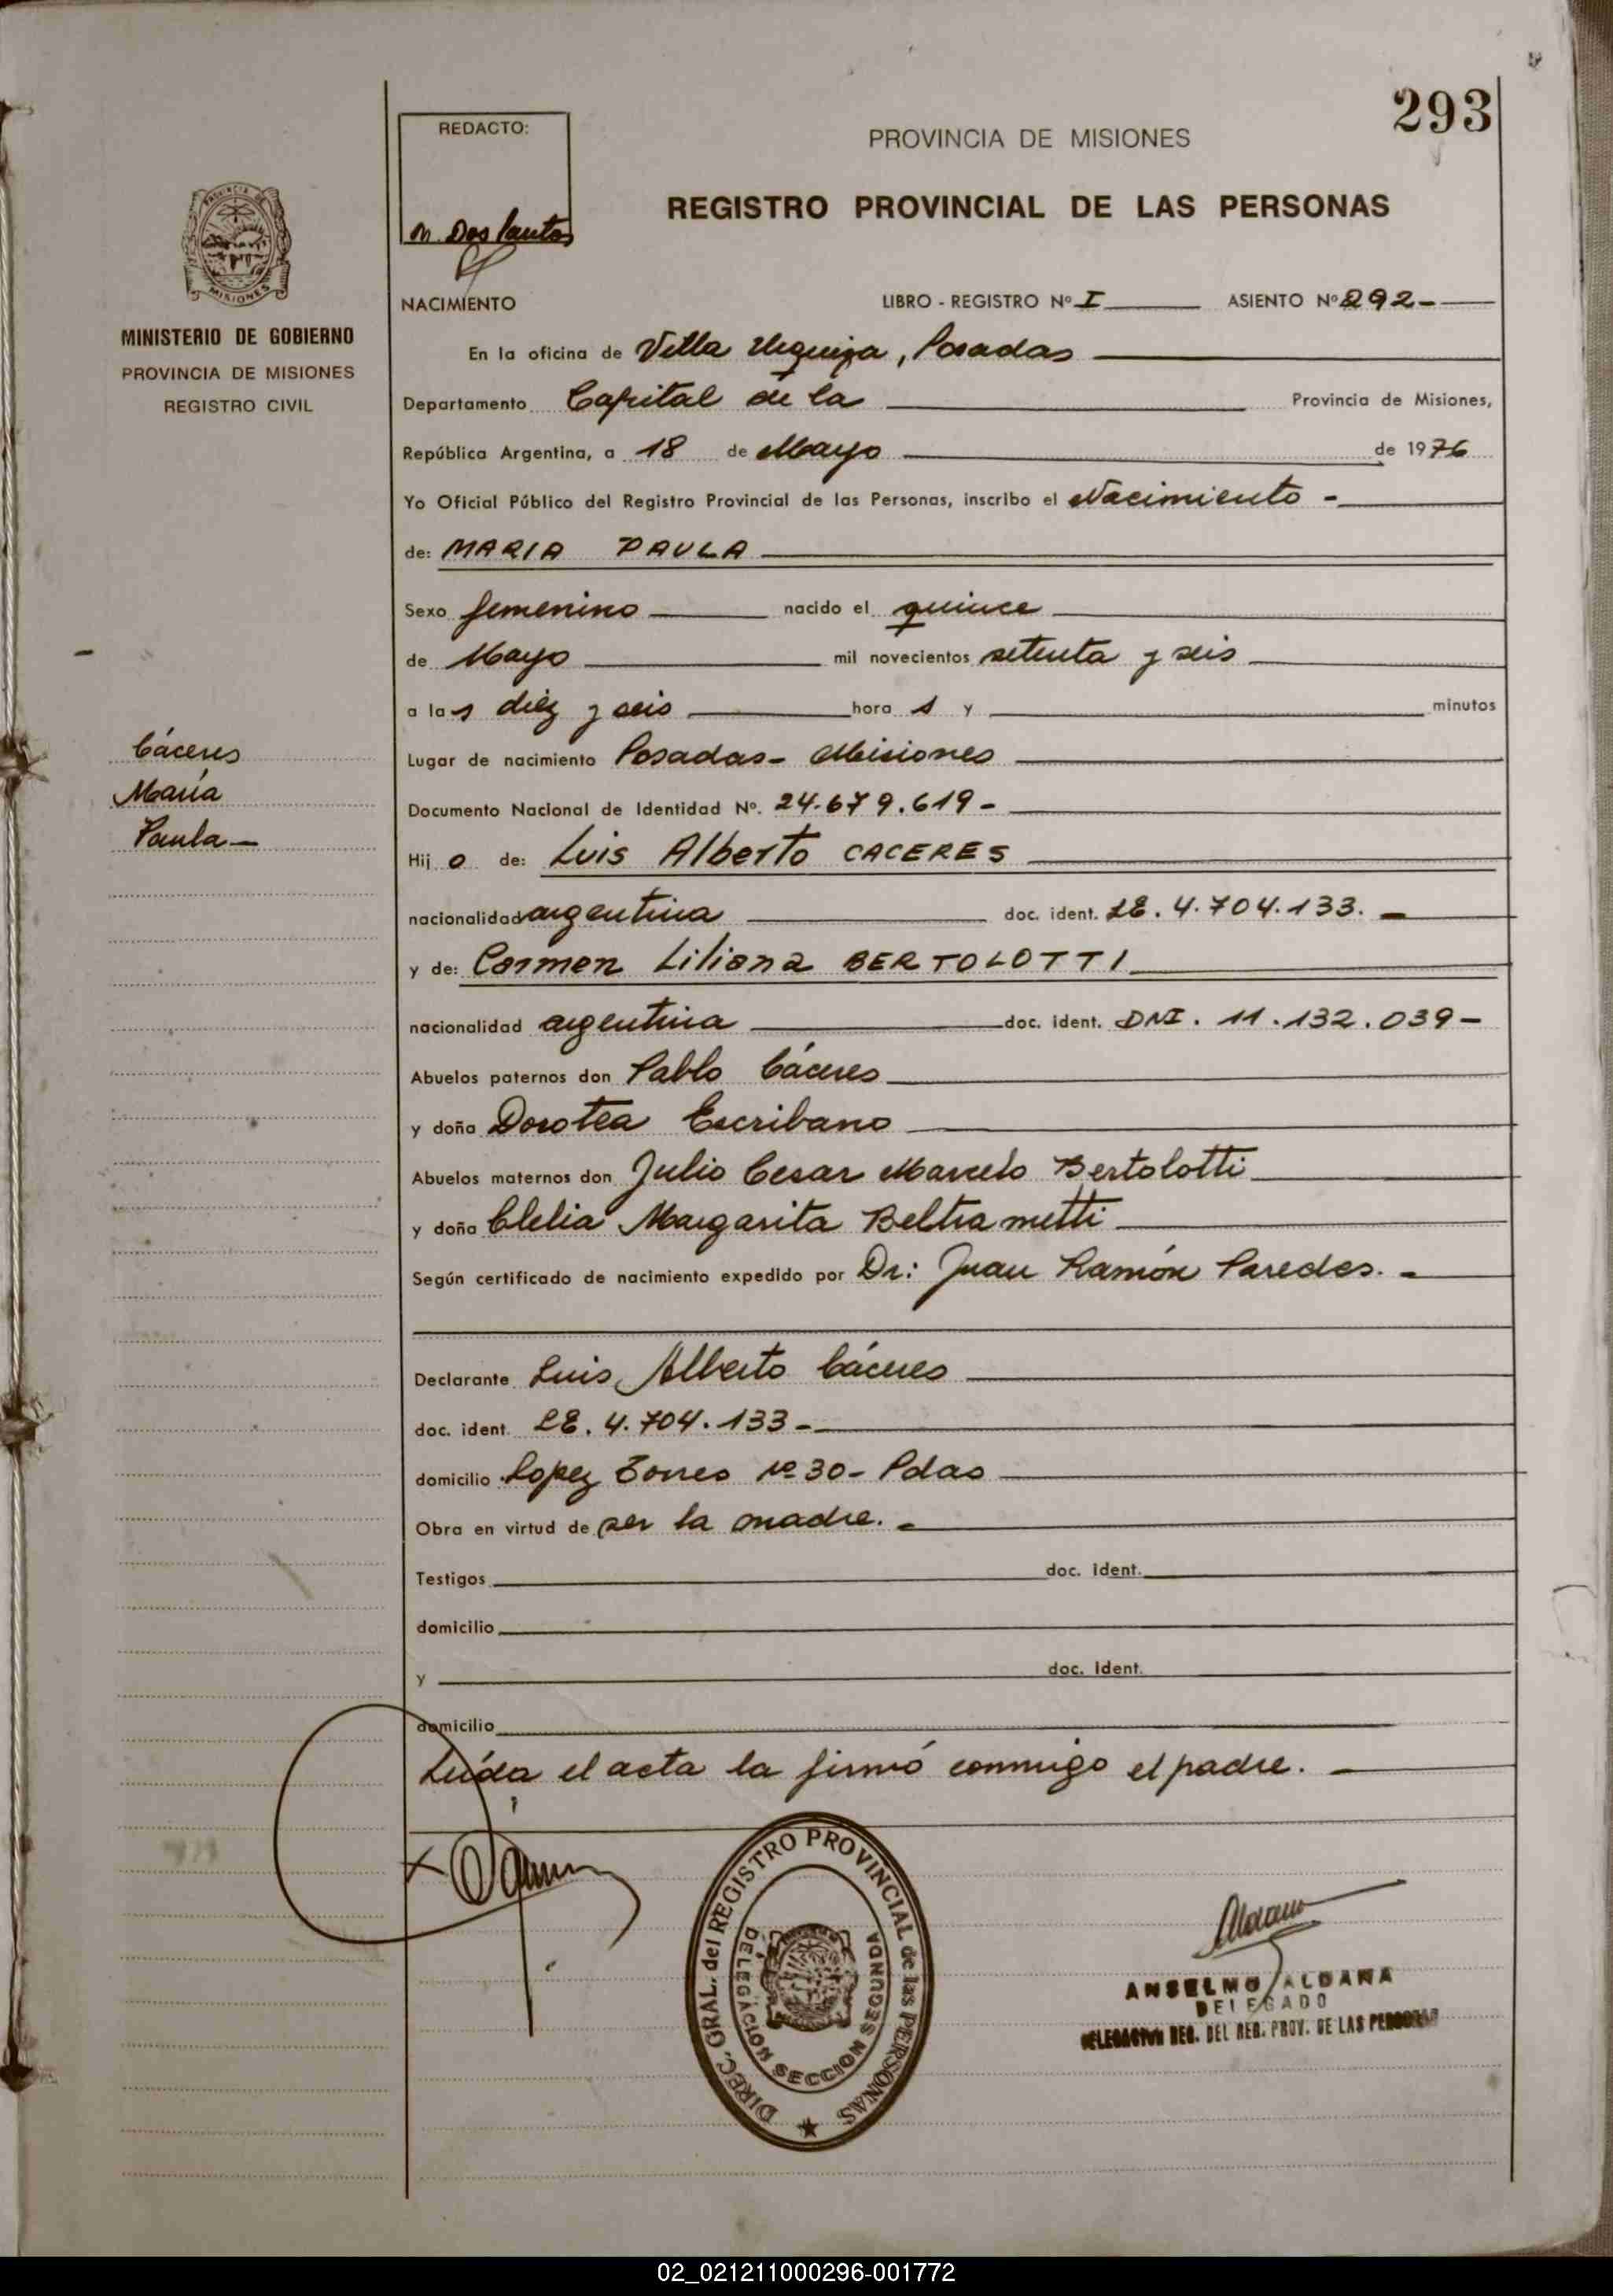 293
REDACTO:
M. Dos Santos
PROVINCIA DE MISIONES
REGISTRO PROVINCIAL DE LAS PERSONAS
PROVINCIA DE
MISIONES
MINISTERIO DE GOBIERNO
PROVINCIA DE MISIONES
REGISTRO CIVIL
NACIMIENTO LIBRO - REGISTRO Nº I ASIENTO Nº 292-
En la oficina de Villa Urquiza, Posadas
Departamento Capital de la Provincia de Misiones,
República Argentina, a 18 de Mayo de 1976
Yo Oficial Público del Registro Provincial de las Personas, inscribo el Nacimiento -
de: MARIA PAULA
Sexo femenino nacido el quince
de Mayo mil novecientos setenta y seis
a las diez y seis hora s y minutos
Cáceres
María
Paula-
Lugar de nacimiento Posadas- Misiones
Documento Nacional de Identidad Nº. 24.679.619-
Hij o de: Luis Alberto CACERES
nacionalidad argentina doc. ident. LE. 4.704.133. -
y de: Carmen Liliana BERTOLOTTI
nacionalidad argentina doc. ident. DNI. 11.132.039-
Abuelos paternos don Pablo Cáceres
y doña Dorotea Escribano
Abuelos maternos don Julio Cesar Marcelo Bertolotti
y doña Clelia Margarita Beltrametti
Según certificado de nacimiento expedido por Dr: Juan Ramón Paredes. -
Declarante Luis Alberto Cáceres
doc. ident. LE. 4.704.133-
domicilio Lopez Torres Nº 30- Pdas
Obra en virtud de ser la madre. -
Testigos doc. ident.
domicilio
y doc. ident.
domicilio
Leída el acta la firmó conmigo el padre. -
DIREC. GRAL. del REGISTRO PROVINCIAL de las PERSONAS
DELEGACION SECCION SEGUNDA
ANSELMO ALDANA
DELEGADO
DELEGACION REG. DEL REG. PROV. DE LAS PERSONAS
02_021211000296-001772